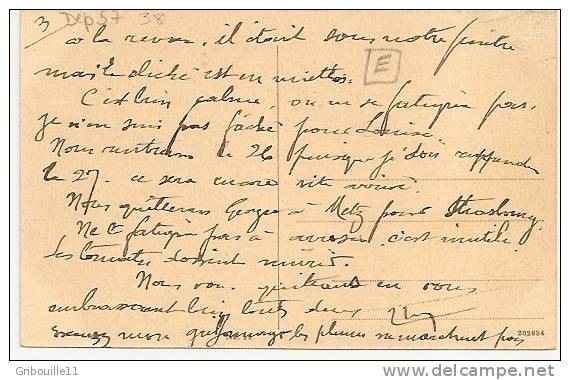 3 Dep 57 38
a la revue, il était sous notre fenêtre
E
mais le cliché est en miettes.
C'est bien calme, on ne se fatigue pas,
je n'en suis pas fâché pour Louise.
Nous rentrons le 26 puisque je dois
le 27. ce sera encore vite arrivé.
Nous quitterons Georges à Metz pour Strasbourg.
Ne te fatigue pas à arroser, c'est inutile
les tomates doivent mûrir.
Nous vous quittons en vous
embrassant bien tous deux
Excusez mon les plumes ne marchent pas
202984
© Gribouille11
www.delcampe.net